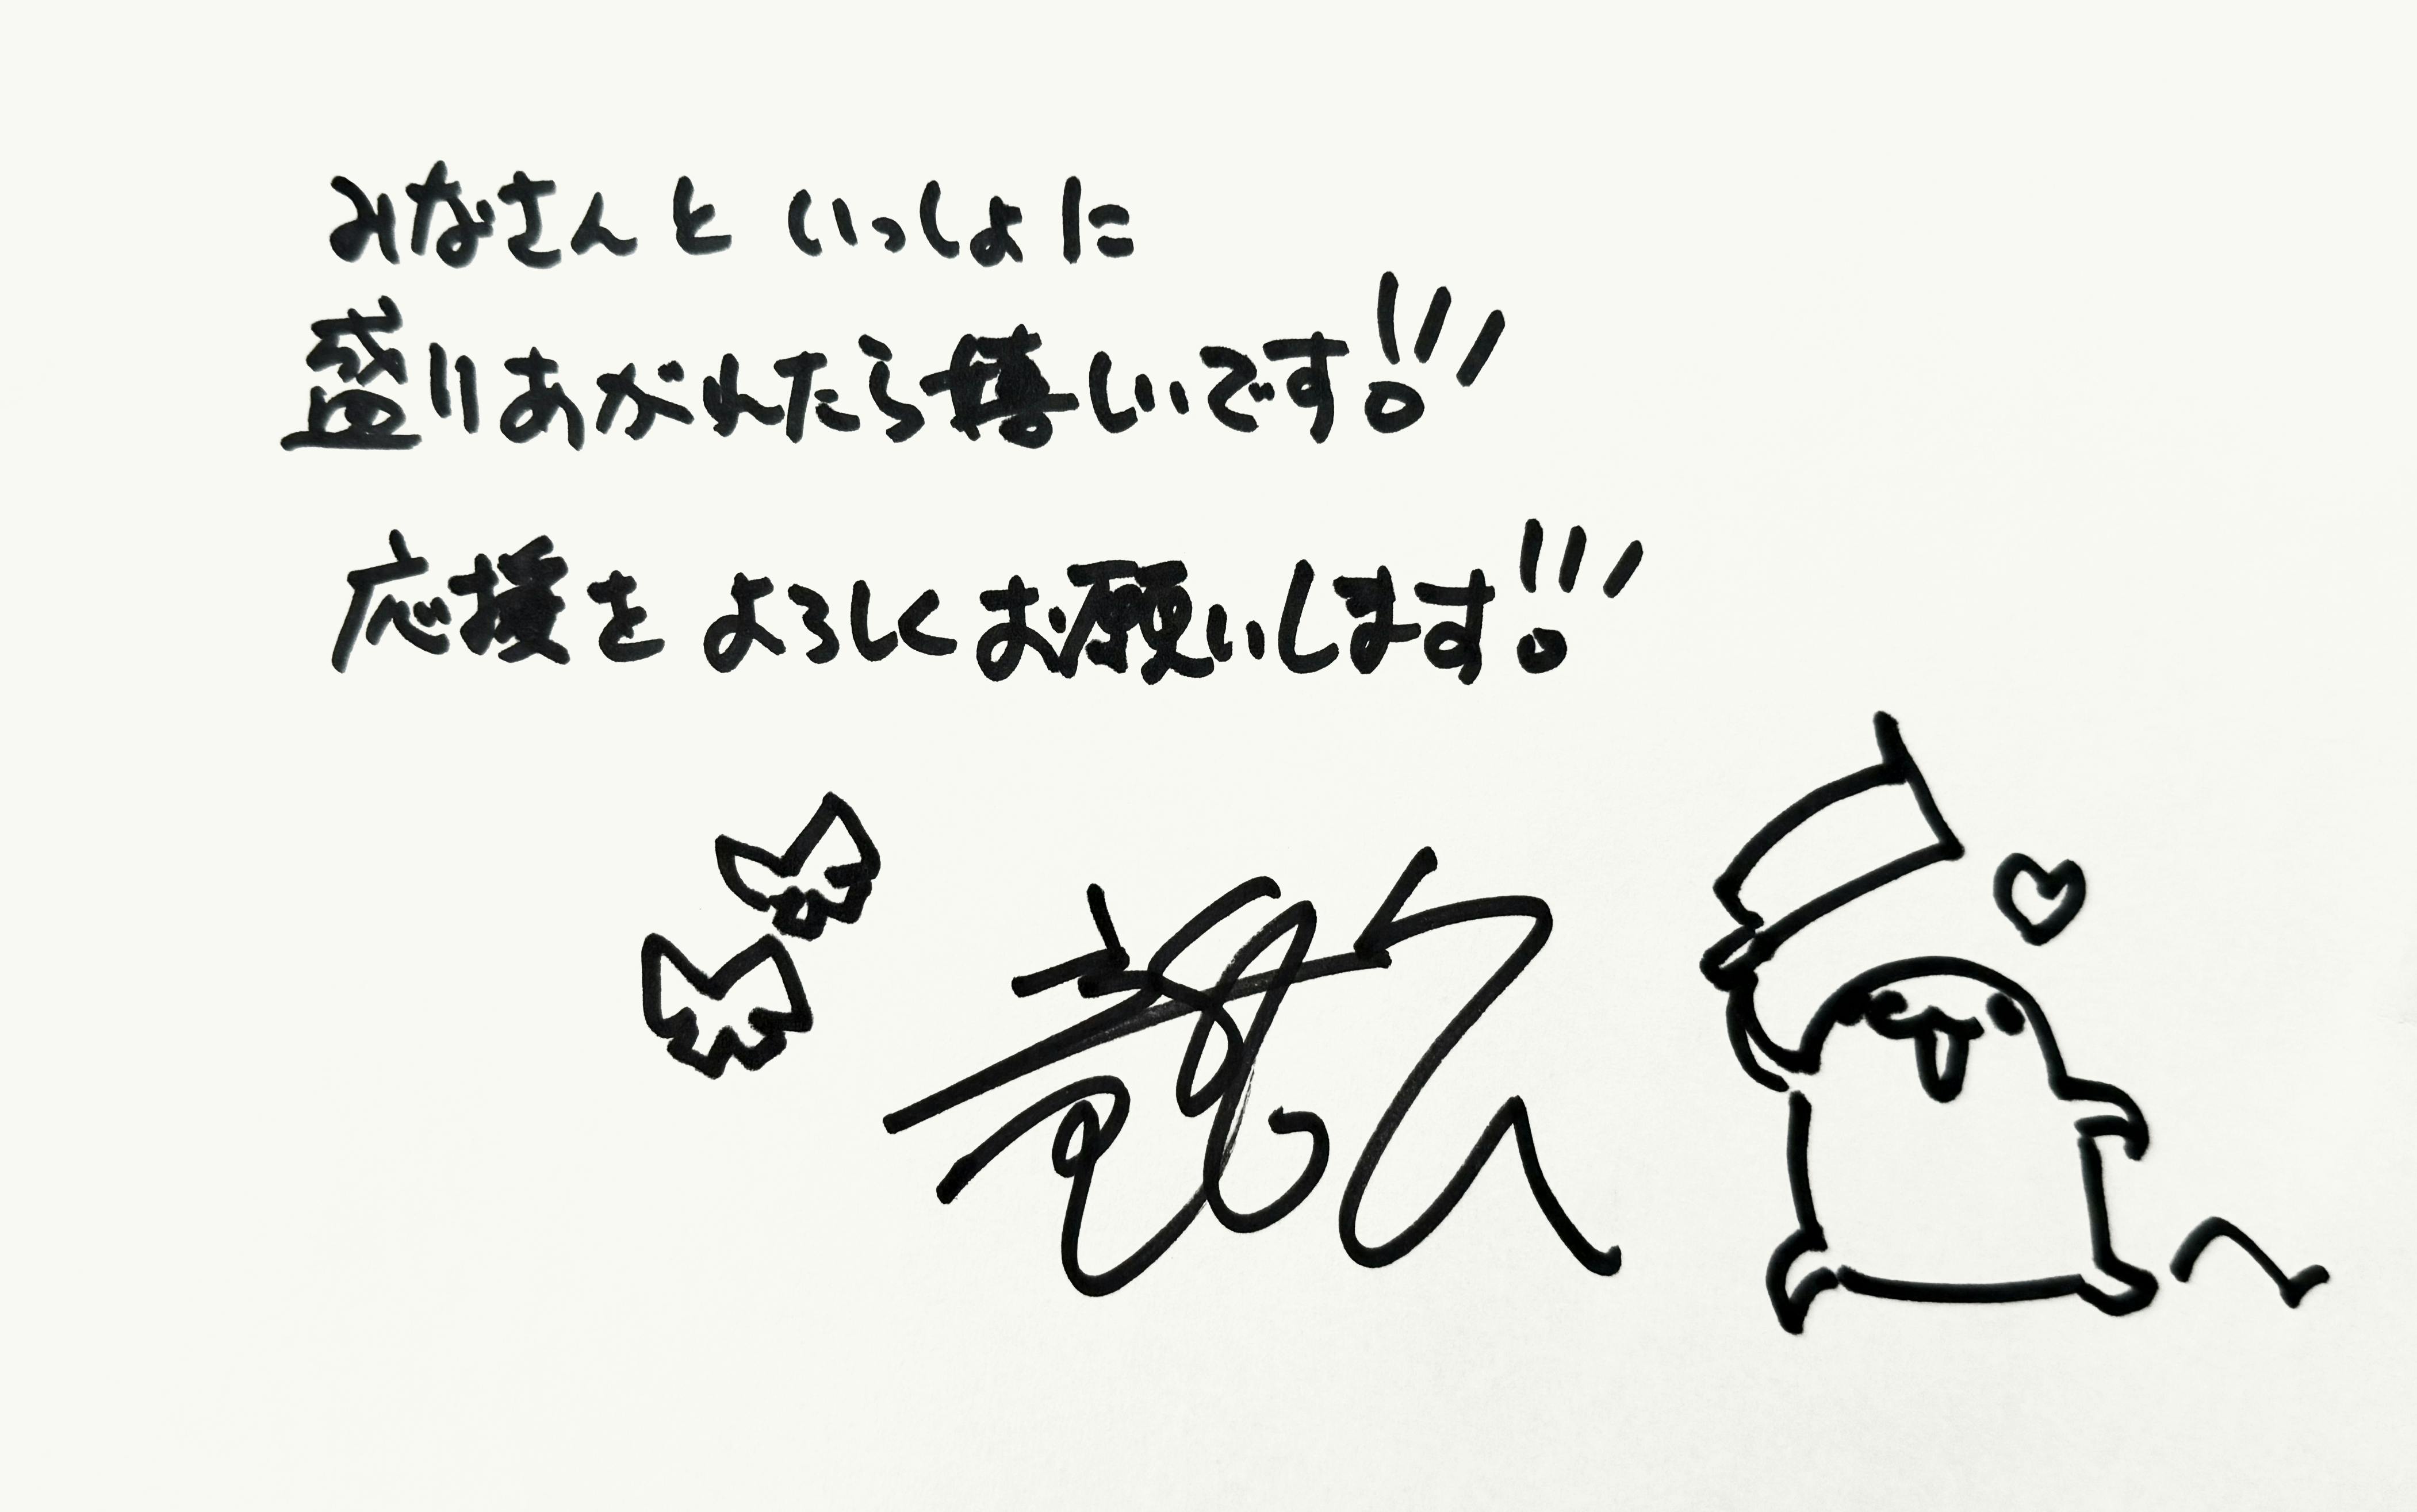 みなさんと いっしょに
盛りあがれたら嬉しいです!!!
応援を よろしくお願いします!!!